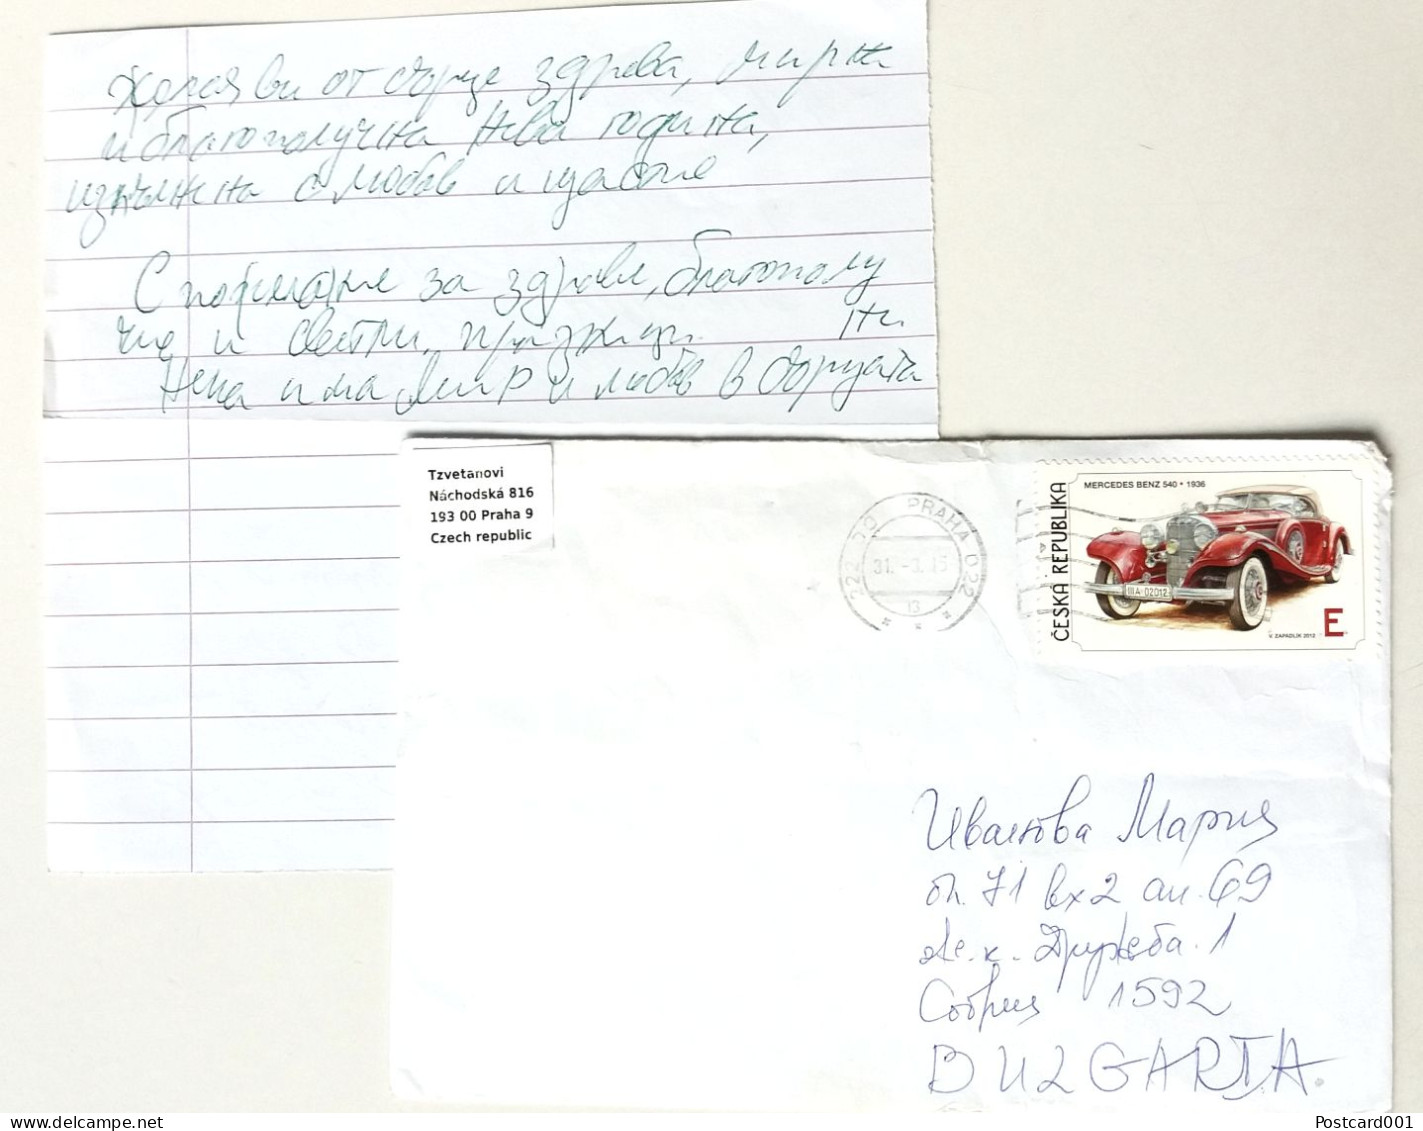 Желая ви от сърце здрава, мирна
и благополучна Нова година,
изпълнена с любов и щастие
С пожелание за здраве, благополу
чие и светли празници. Ни
Нека има мир и любов в сърцата
Tzvetanovi
Náchodská 816
193 00 Praha 9
Czech republic
222 70 PRAHA 022
31.-3.15
13
ČESKÁ REPUBLIKA
MERCEDES BENZ 540 • 1936
IIIA-02012
K ZAPADLÍK 2012
E
Иванова Мария
бл. 71 вх 2 ап. 69
ж.к. Дружба 1
София 1592
BULGARIA.
www.delcampe.net
Postcard001